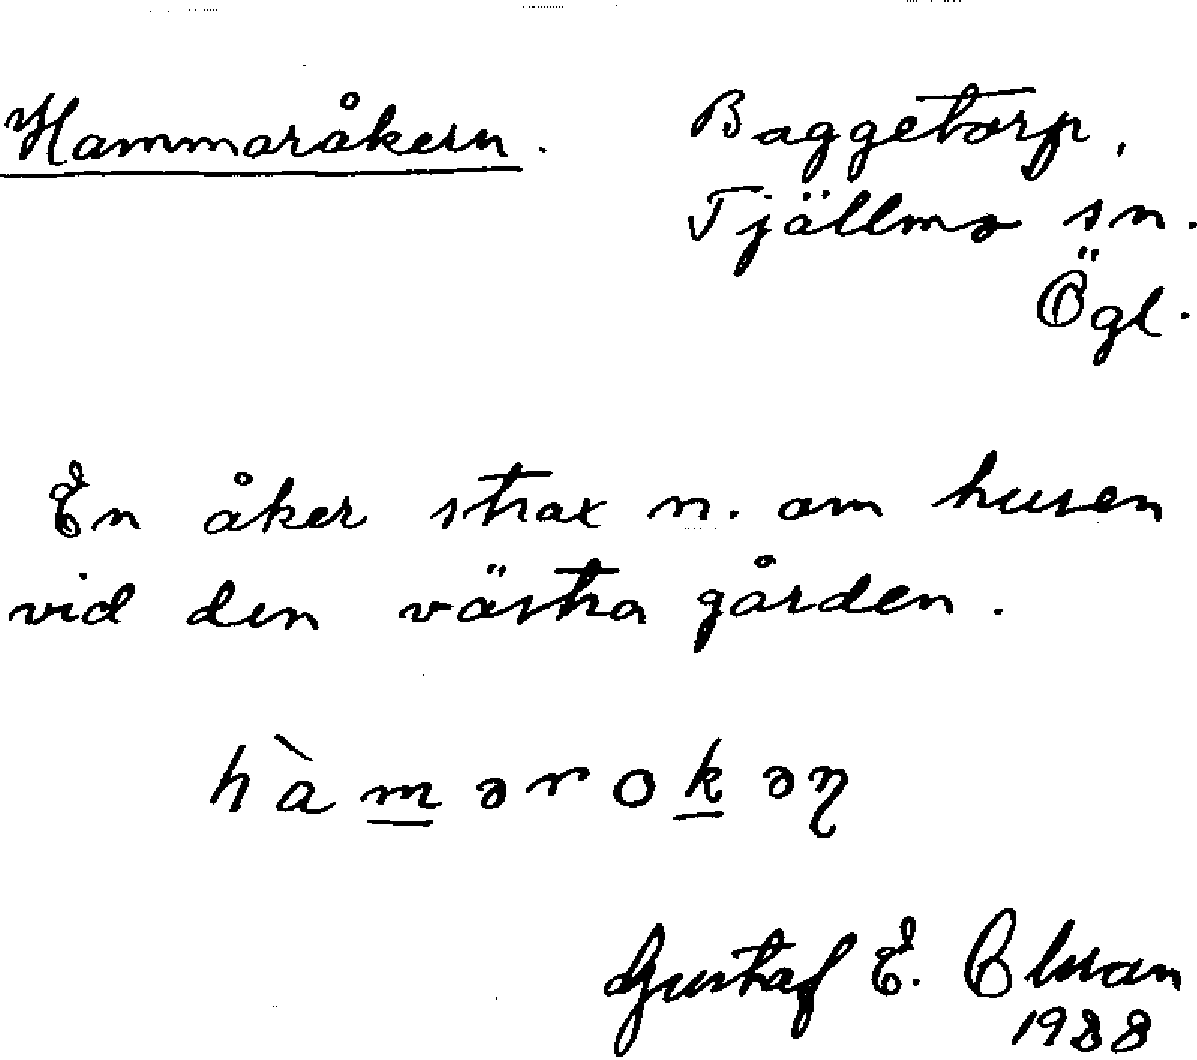 Hammaråkern. Baggetorp,
Tjällmo sn.
Ögl.
En åker strax n. om husen
vid den västra gården.
hàmərokəɳ
Gustaf E. Olsson
1938